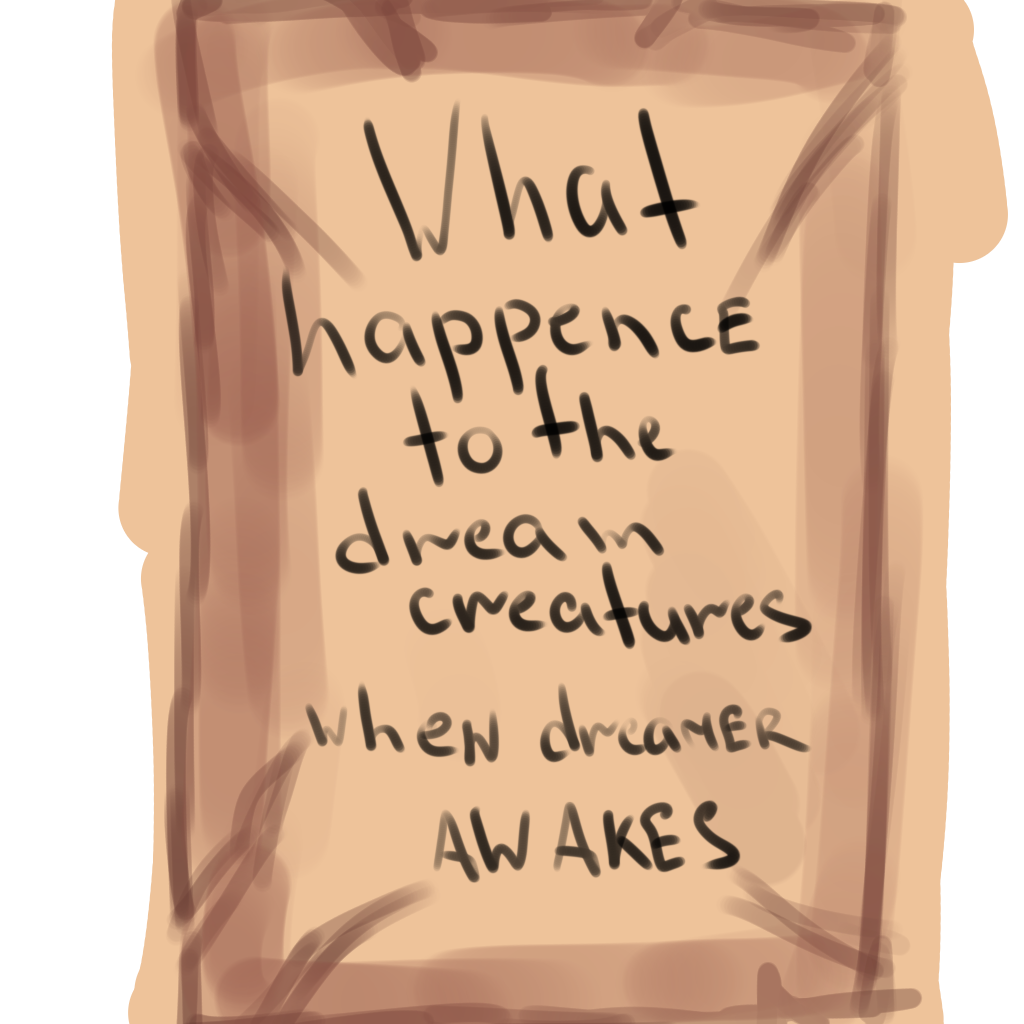 What
happencE
to the
dream
creatures
when dreamER
AWAKES